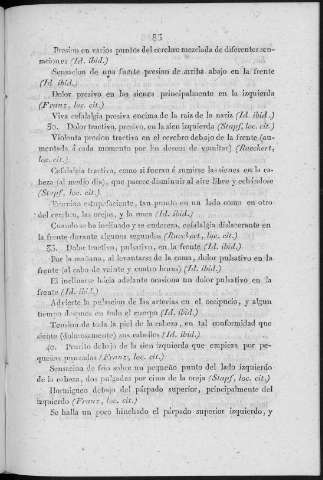 83
Presion en varios puntos del cerebro mezclada de diferentes sen-
saciones (Id. ibid.)
Sensacion de una fuerte presion de arriba abajo en la frente
(Id. ibid.)
Dolor presivo en las sienes principalmente en la izquierda
(Franz, loc. cit.)
Viva cefalalgia presiva encima de la raiz de la nariz (Id. ibid.)
30. Dolor tractivo, presivo, en la sien izquierda (Stapf, loc. cit.)
Violenta presion tractiva en el cerebro debajo de la frente (au-
mentada á cada momento por los deseos de vomitar) (Rueckert,
loc. cit.)
Cefalalgia tractiva, como si fueran á sumirse las sienes en la ca-
beza (al medio dia), que parece disminuir al aire libre y echándose
(Stapf, loc. cit.)
Tension estupefaciente, tan pronto en un lado como en otro
del cerebro, las orejas, y la nuca (Id. ibid.)
Cuando se ha inclinado y se endereza, cefalalgia dislacerante en
la frente durante algunos segundos (Rueckert, loc. cit.)
35. Dolor tractivo, pulsativo, en la frente (Id. ibid.)
Por la mañana, al levantarse de la cama, dolor pulsativo en la
frente (al cabo de veinte y cuatro horas) (Id. ibid.)
El inclinarse hácia adelante ocasiona un dolor pulsativo en la
frente (Id. ibid.)
Advierte la pulsacion de las arterias en el occipucio, y algun
tiempo despues en todo el cuerpo (Id. ibid.)
Tension de toda la piel de la cabeza, en tal conformidad que
siente (dolorosamente) sus cabellos (Id. ibid.)
40. Prurito debajo de la sien izquierda que empieza por pe-
queñas punzadas (Franz, loc. cit.)
Sensacion de frio sobre un pequeño punto del lado izquierdo
de la cabeza, dos pulgadas por cima de la oreja (Stapf, loc. cit.)
Hormigueo debajo del párpado superior, principalmente del
izquierdo (Franz, loc. cit.)
Se halla un poco hinchado el párpado superior izquierdo, y